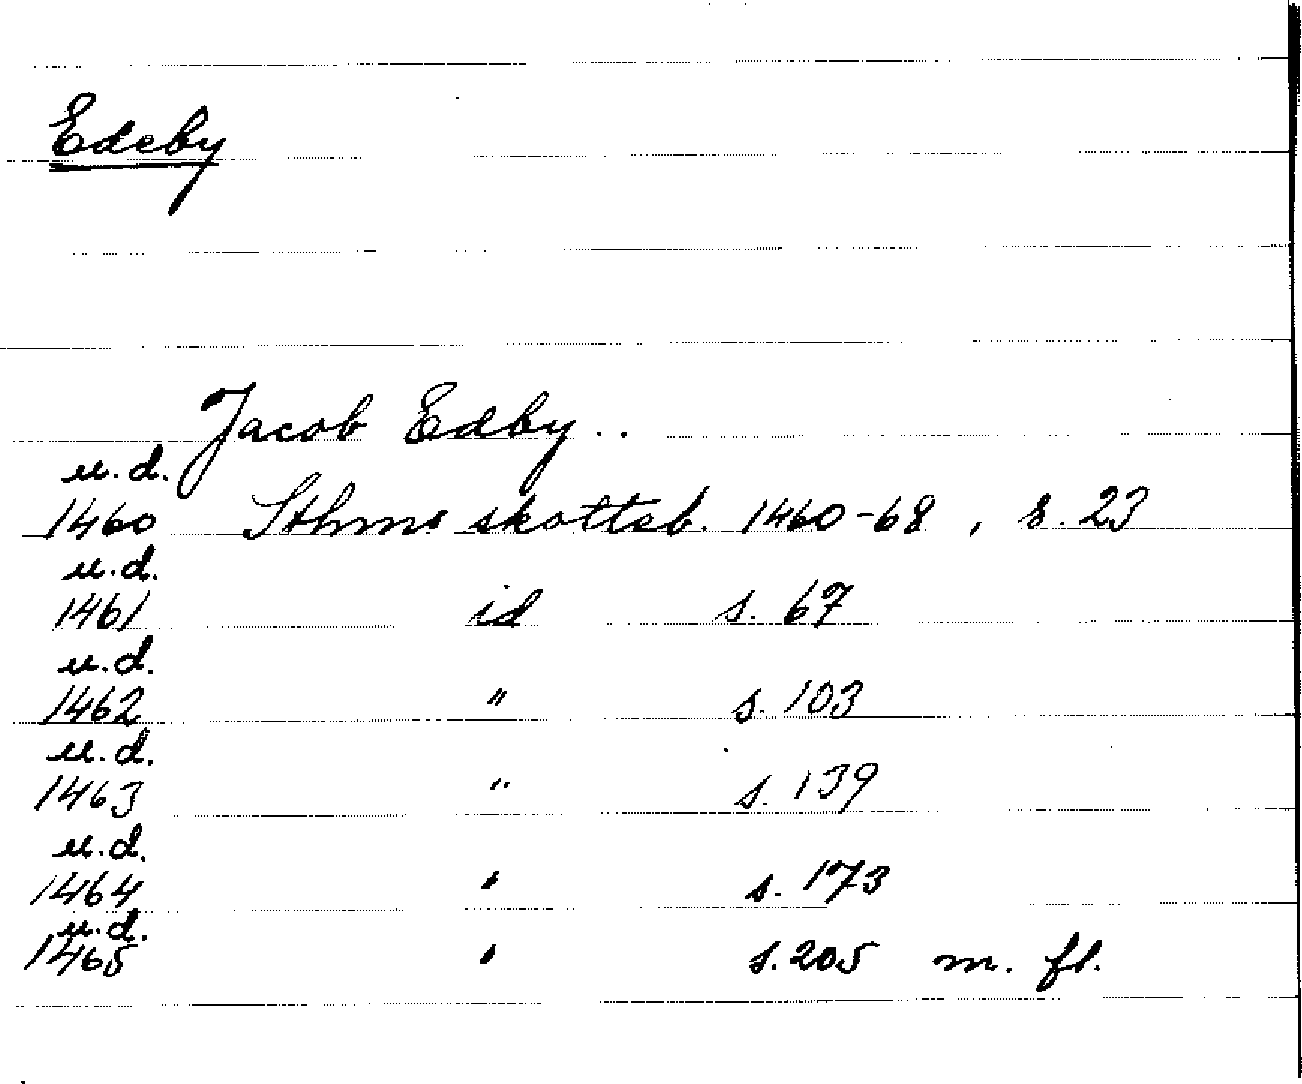 Edeby
Jacob Edby..
u.d.
1460 Sthms skotteb. 1460-68, s. 23
u.d.
1461 id s. 67
u.d.
1462 " s. 103
u.d.
1463 " s. 139
u.d.
1464 " s. 173
u.d.
1465 " s. 205 m. fl.